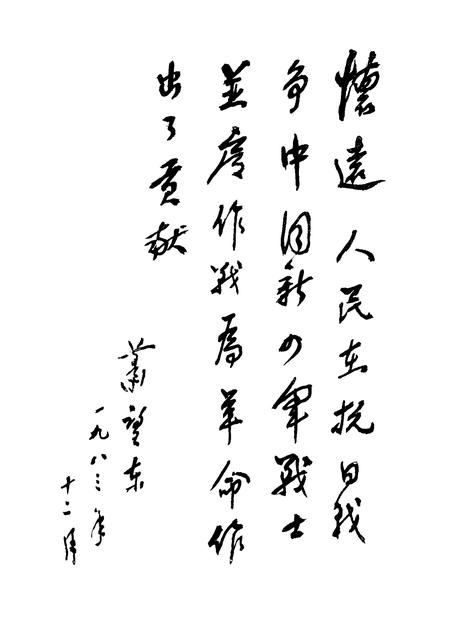 懷遠人民在抗日战
争中同新四軍战士
並肩作战為革命作
出了贡献
萧望东
一九八三年
十二月